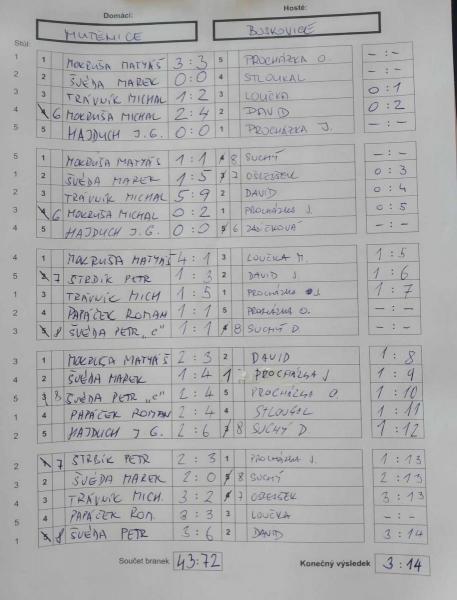 Domácí: Hosté:
MUTĚNICE BOSKOVICE
Stůl:
1 1 MOKRUŠA MATYÁŠ 3:3 5 PROCHÁZKA O. -:-
2 2 ŠVÉDA MAREK 0:0 4 STLOUKAL -:-
3 3 TRÁVNÍK MICHAL 1:2 3 LOUČKA 0:1
4 6 MOKRUŠA MICHAL 2:4 2 DAVID 0:2
5 5 HAJDUCH J.G. 0:0 1 PROCHÁZKA J. -:-
5 1 MOKRUŠA MATYÁŠ 1:1 8 SUCHÝ -:-
1 2 ŠVÉDA MAREK 1:5 7 0:3
2 3 TRÁVNÍK MICHAL 5:9 2 DAVID 0:4
3 6 MOKRUŠA MICHAL 0:2 1 PROCHÁZKA J. 0:5
4 5 HAJDUCH J.G. 0:0 6 -:-
4 1 MOKRUŠA MATYÁŠ 4:1 3 LOUČKA M. 1:5
5 7 STRDÍK PETR 1:3 2 DAVID J 1:6
1 3 TRÁVNÍK MICH 1:5 1 PROCHÁZKA J 1:7
2 4 PAPÁČEK ROMAN 1:1 5 PROCHÁZKA O. -:-
3 8 ŠVÉDA PETR "C" 1:1 8 SUCHÝ D. -:-
3 1 MOKRUŠA MATYÁŠ 2:3 2 DAVID 1:8
4 2 ŠVÉDA MAREK 1:4 1 PROCHÁZKA J 1:9
5 8 ŠVÉDA PETR "C" 2:4 5 PROCHÁZKA O. 1:10
1 4 PAPÁČEK ROMAN 2:4 4 STLOUKAL 1:11
2 5 HAJDUCH J G. 2:6 8 SUCHÝ D 1:12
2 7 STRDÍK PETR 2:3 1 PROCHÁZKA J. 1:13
3 2 ŠVÉDA MAREK 2:0 8 SUCHÝ 2:13
4 3 TRÁVNÍK MICH. 3:2 7 3:13
5 4 PAPÁČEK ROM. 3:3 3 LOUČKA -:-
1 8 ŠVÉDA PETR 3:6 2 DAVID 3:14
Součet branek 43:72 Konečný výsledek 3:14